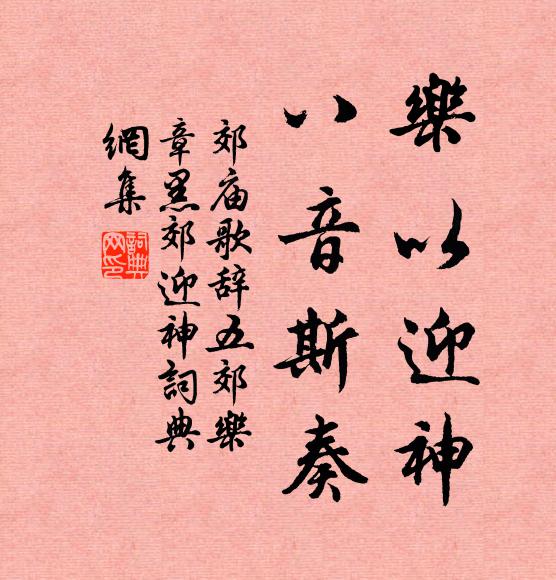 樂以迎神
八音斯奏
郊庙歌辞五郊樂
章黑郊迎神詞典
網集
詞典
网印